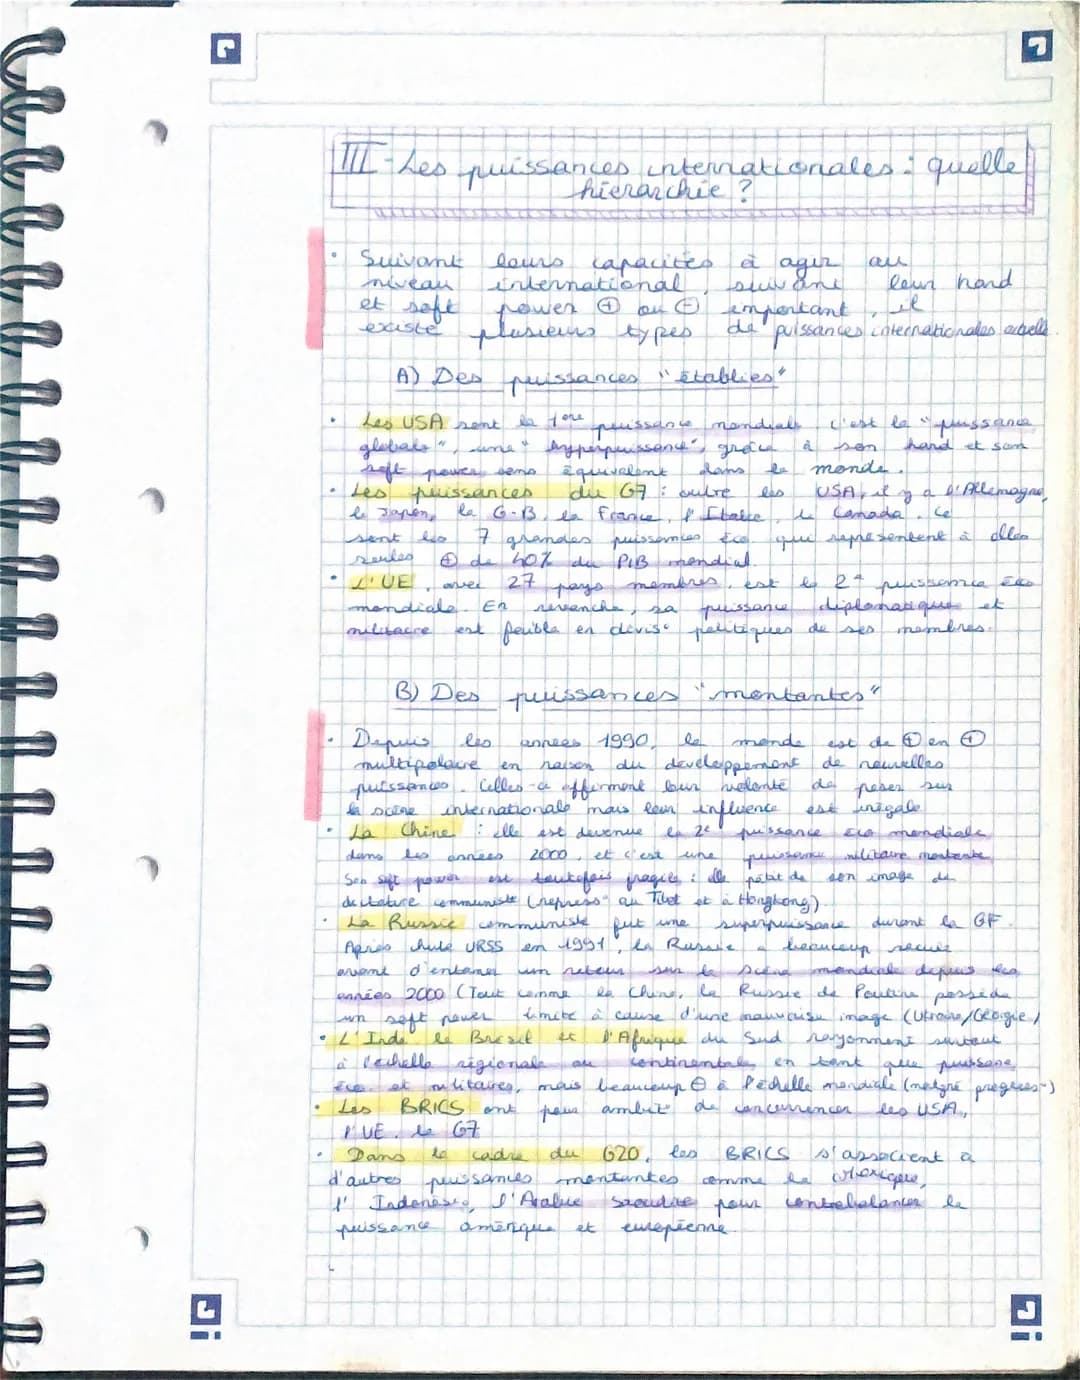 III - Les puissances internationales : quelle
hiérarchie ?
• Suivant leurs capacités à agir au
niveau international, suivant leur hard
et soft power ⊕ ou ⊖ important, il
existe plusieurs types de puissances internationales actuelle.
A) Des puissances "établies"
• Les USA sont la 1ère puissance mondiale, c'est la "puissance
globale", une "hyperpuissance", grâce à son hard et son
soft power sans équivalent dans le monde.
• Les puissances du G7 : outre les USA, il y a l'Allemagne,
le Japon, la G-B, la France, l'Italie, le Canada. Ce
sont les 7 grandes puissances éco qui représentent à elles
seules ⊕ de 40% du PIB mondial.
• L'UE, avec 27 pays membres, est la 2e puissance éco
mondiale. En revanche, sa puissance diplomatique et
militaire est faible en divis° politiques de ses membres.
B) Des puissances "montantes"
• Depuis les années 1990, le monde est de ⊕ en ⊕
multipolaire en raison du développement de nouvelles
puissances. Celles-ci affirment leur volonté de peser sur
la scène internationale mais leur influence est inégale
• La Chine : elle est devenue la 2e puissance éco mondiale
dans les années 2000, et c'est une puissance militaire montante
Son soft power est toutefois fragile : elle pâtit de son image de
dictature communiste (repress° au Tibet et à Hongkong).
• La Russie communiste fut une superpuissance durant la GF.
Après chute URSS en 1991, la Russie a beaucoup reculé
avant d'entamer un retour sur la scène mondiale depuis les
années 2000 (Tout comme la Chine, la Russie de Poutine possède
un soft power limité à cause d'une mauvaise image (Ukraine/Géorgie)
• L'Inde le Brésil et l'Afrique du Sud rayonnent surtout
à l'échelle régionale ou continentale en tant que puissance
éco. et militaires, mais beaucoup ⊖ à l'échelle mondiale (malgré progress°)
• Les BRICS ont pour ambit° de concurrencer les USA,
l'UE, le G7
• Dans le cadre du G20, les BRICS s'associent à
d'autres puissances montantes comme le Mexique,
l'Indonésie, l'Arabie Saoudite pour contrebalancer la
puissance amérique et européenne.